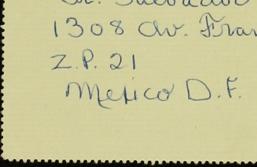 1308 Av. Fran
Z.P. 21
Mexico D.F.